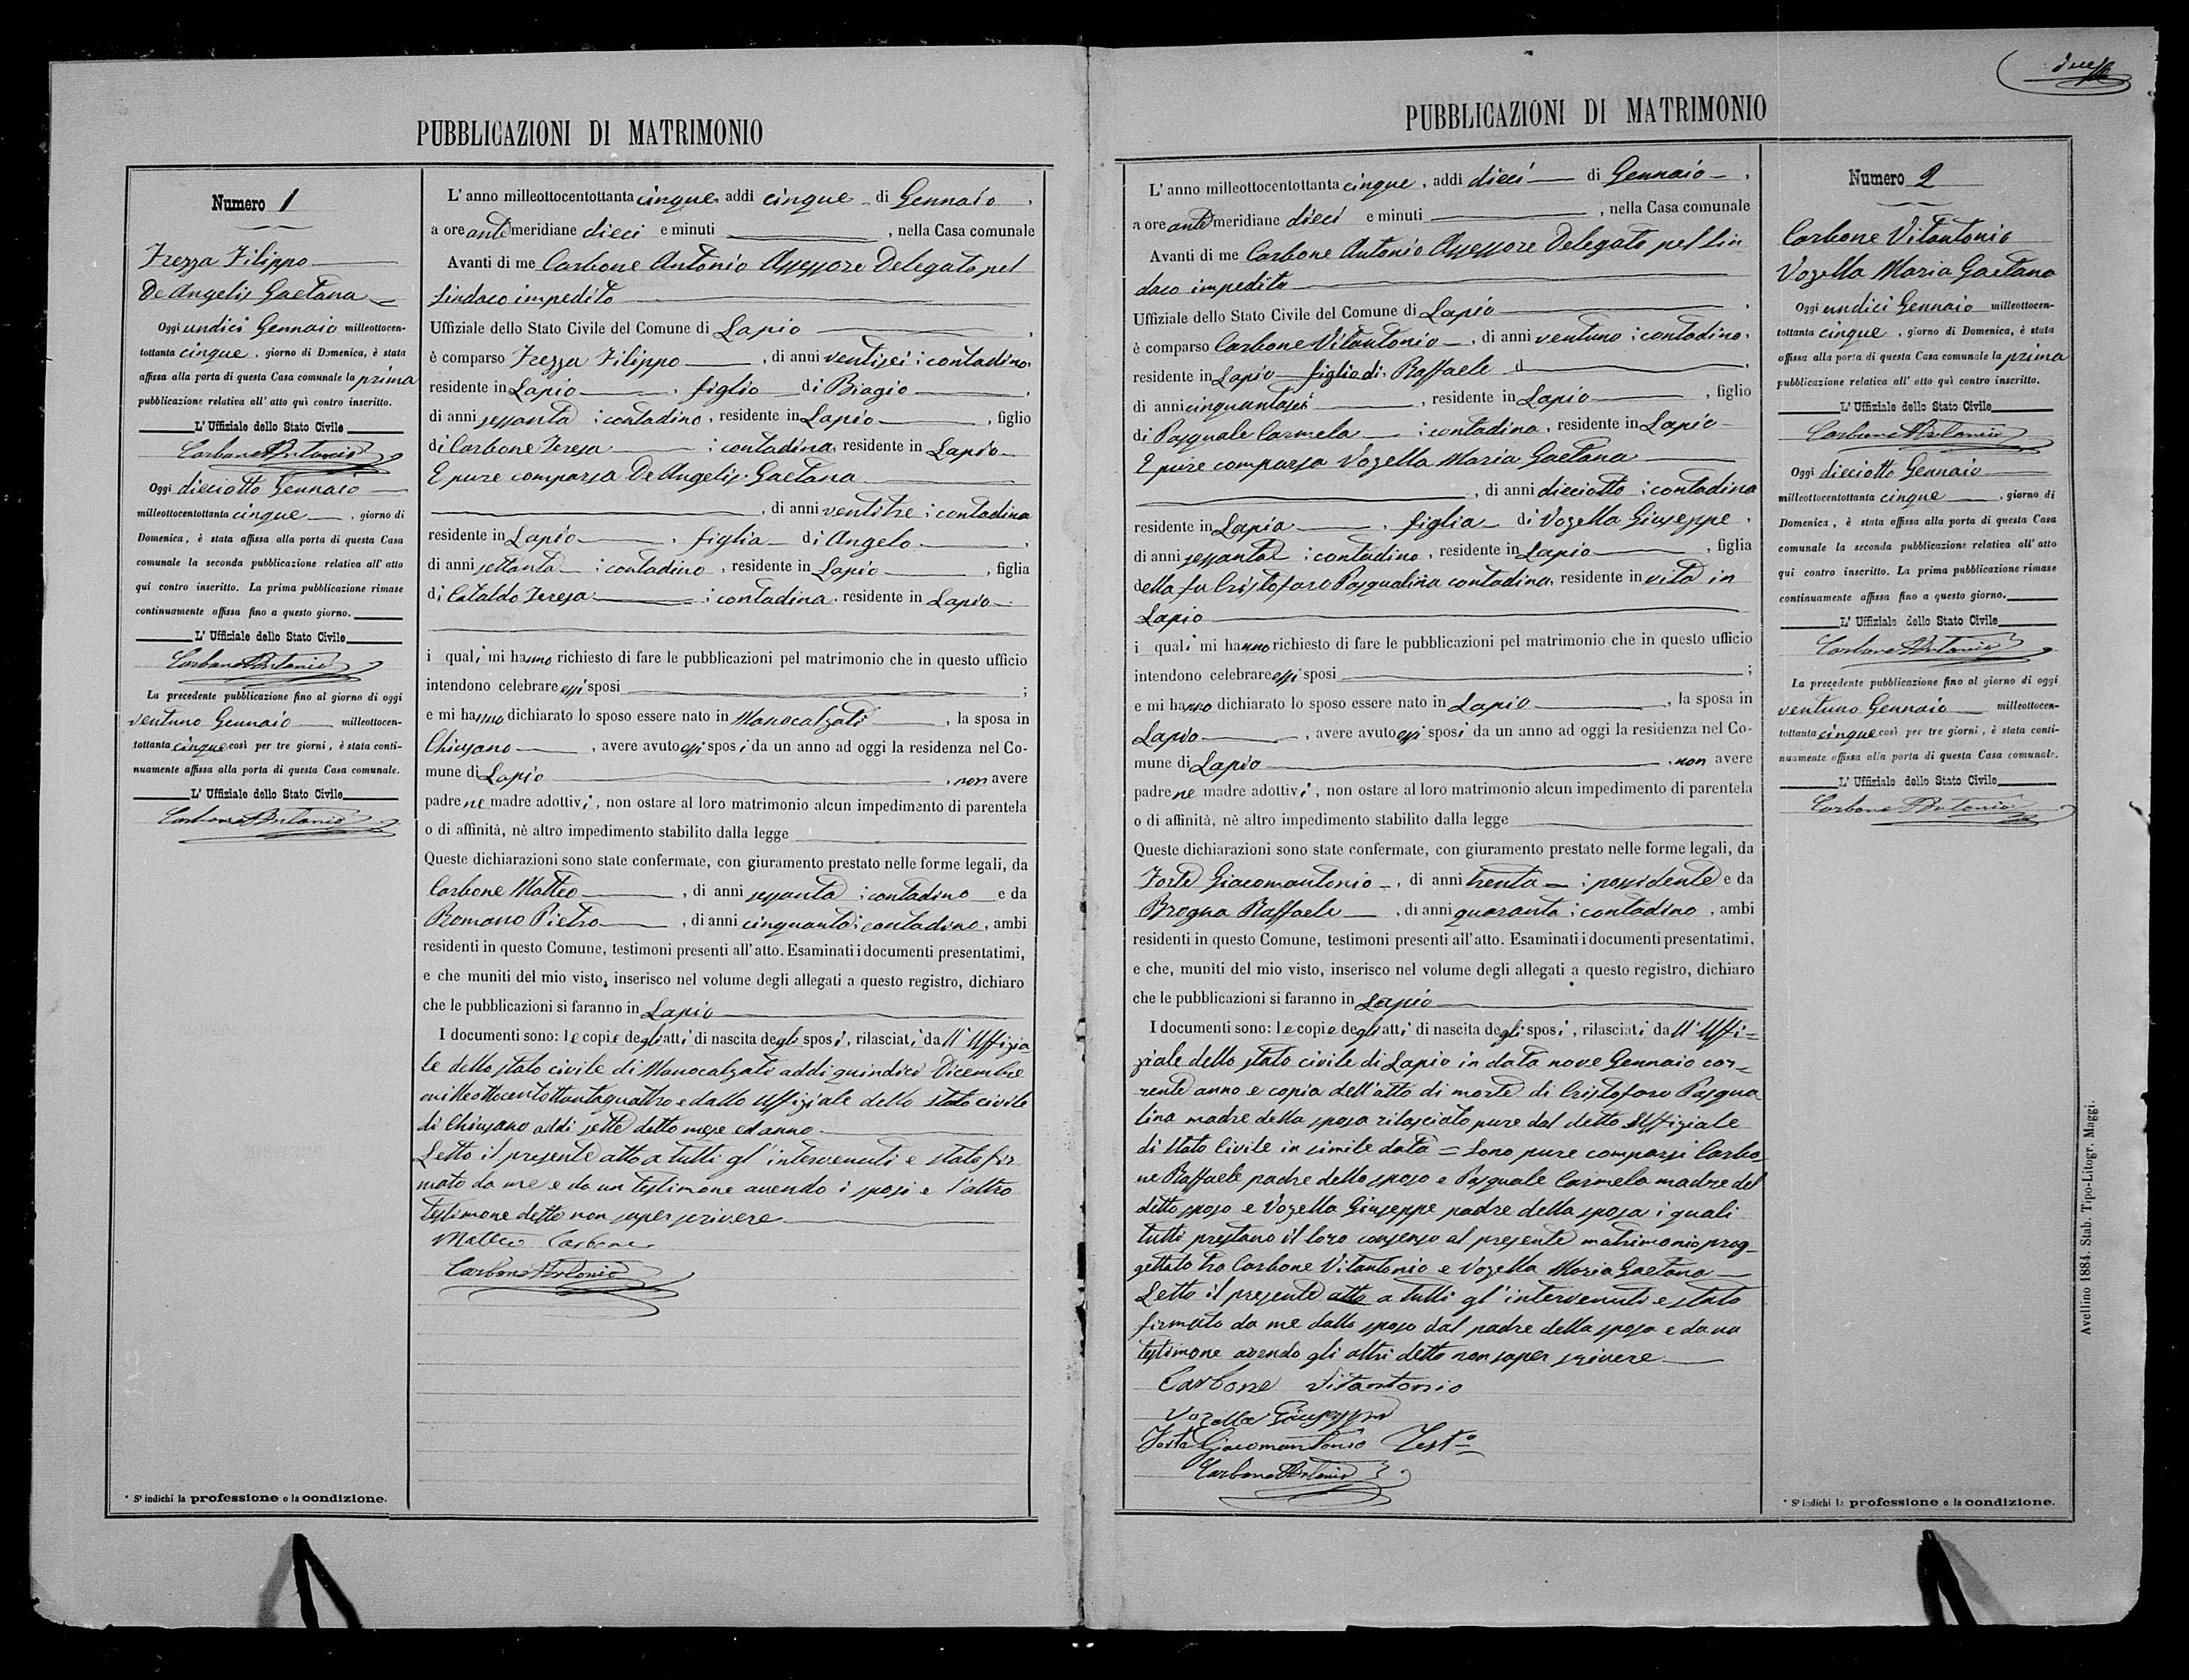 PUBBLICAZIONI DI MATRIMONIO
Numero 1
Frezza Filippo
De Angelis Gaetana
Oggi undici Gennaio milleottocen-
tottanta cinque, giorno di Domenica, è stata
affissa alla porta di questa Casa comunale la prima
pubblicazione relativa all' atto quì contro inscritto.
L' Uffiziale dello Stato Civile
Carbone Antonio
Oggi dieciotto Gennaio
milleottocentottanta cinque, giorno di
Domenica, è stata affissa alla porta di questa Casa
comunale la seconda pubblicazione relativa all' atto
quì contro inscritto. La prima pubblicazione rimase
continuamente affissa fino a questo giorno.
L' Uffiziale dello Stato Civile
Carbone Antonio
La precedente pubblicazione fino al giorno di oggi
ventuno Gennaio milleottocen-
tottanta cinque così per tre giorni, è stata conti-
nuamente affissa alla porta di questa Casa comunale.
L' Uffiziale dello Stato Civile
Carbone Antonio
* S' indichi la professione o la condizione.
L' anno milleottocentottanta cinque, addì cinque di Gennaio,
a ore antemeridiane dieci e minuti , nella Casa comunale
Avanti di me Carbone Antonio Assessore Delegato pel
Sindaco impedito
Uffiziale dello Stato Civile del Comune di Lapio,
è comparso Frezza Filippo, di anni ventisei ; contadino,
residente in Lapio, figlio di Biagio,
di anni sessanta ; contadino, residente in Lapio, figlio
di Carbone Teresa ; contadina, residente in Lapio
E pure comparsa De Angelis Gaetana
, di anni ventitre ; contadina
residente in Lapio, figlia di Angelo,
di anni settanta ; contadino, residente in Lapio, figlia
di Cataldo Teresa ; contadina, residente in Lapio
i quali mi hanno richiesto di fare le pubblicazioni pel matrimonio che in questo ufficio
intendono celebrare essi sposi ;
e mi hanno dichiarato lo sposo essere nato in Manocalzati, la sposa in
Chiusano, avere avuto essi sposi da un anno ad oggi la residenza nel Co-
mune di Lapio, non avere
padre ne madre adottivi, non ostare al loro matrimonio alcun impedimento di parentela
o di affinità, nè altro impedimento stabilito dalla legge
Queste dichiarazioni sono state confermate, con giuramento prestato nelle forme legali, da
Carbone Matteo, di anni sessanta ; contadino e da
Romano Pietro, di anni cinquanta ; contadino, ambi
residenti in questo Comune, testimoni presenti all' atto. Esaminati i documenti presentatimi,
e che muniti del mio visto, inserisco nel volume degli allegati a questo registro, dichiaro
che le pubblicazioni si faranno in Lapio
I documenti sono: le copie degli atti di nascita degli sposi, rilasciati dall' Uffizia-
le dello stato civile di Manocalzati addi quindici Dicembre
milleottocentottantaquattro e dallo Uffiziale dello stato civile
di Chiusano addi sette detto mese ed anno
Letto il presente atto a tutti gl' intervenuti e stato fir
mato da me e da un testimone avendo i sposi e l'altro
testimone detto non saper scrivere
Matteo Carbone
Carbone Antonio
PUBBLICAZIONI DI MATRIMONIO
L' anno milleottocentottanta cinque, addì dieci di Gennaio,
a ore antemeridiane dieci e minuti , nella Casa comunale
Avanti di me Carbone Antonio Assessore Delegato pel Sin
daco impedito
Uffiziale dello Stato Civile del Comune di Lapio,
è comparso Carbone Vitantonio, di anni ventuno ; contadino,
residente in Lapio figlio di Raffaele d
di anni cinquantasei, residente in Lapio, figlio
di Pasquale Carmela ; contadina, residente in Lapio
E pure comparsa Vozella Maria Gaetana
, di anni dieciotto ; contadina
residente in Lapio, figlia di Vozella Giuseppe,
di anni sessanta ; contadino, residente in Lapio, figlia
della fu Cristofaro Pasqualina contadina, residente in vita in
Lapio
i quali mi hanno richiesto di fare le pubblicazioni pel matrimonio che in questo ufficio
intendono celebrare essi sposi ;
e mi hanno dichiarato lo sposo essere nato in Lapio, la sposa in
Lapio, avere avuto essi sposi da un anno ad oggi la residenza nel Co-
mune di Lapio, non avere
padre ne madre adottivi, non ostare al loro matrimonio alcun impedimento di parentela
o di affinità, nè altro impedimento stabilito dalla legge
Queste dichiarazioni sono state confermate, con giuramento prestato nelle forme legali, da
Forte Giacomantonio, di anni trenta ; possidente e da
Brogna Raffaele, di anni quaranta ; contadino, ambi
residenti in questo Comune, testimoni presenti all' atto. Esaminati i documenti presentatimi,
e che, muniti del mio visto, inserisco nel volume degli allegati a questo registro, dichiaro
che le pubblicazioni si faranno in Lapio
I documenti sono: le copie degli atti di nascita degli sposi, rilasciati dall' Uffi=
ziale dello stato civile di Lapio in data nove Gennaio cor-
rente anno e copia dell'atto di morte di Cristofaro Pasqua
lina madre della sposa rilasciato pure dal detto Uffiziale
di Stato Civile in simile data = Sono pure comparsi Carbo-
ne Raffaele padre dello sposo e Pasquale Carmela madre del
ditto sposo e Vozella Giuseppe padre della sposa i quali
tutti prestano il loro consenso al presente matrimonio prog-
gettato tra Carbone Vitantonio e Vozella Maria Gaetana
Letto il presente atto a tutti gl' intervenuti e stato
firmato da me dallo sposo dal padre della sposa e da un
testimone avendo gli altri detto non saper scrivere
Carbone Vitantonio
Vozella Giuseppe
Forte Giacomantonio Test.o
Carbone Antonio
due
Numero 2
Carbone Vitantonio
Vozella Maria Gaetana
Oggi undici Gennaio milleottocen-
tottanta cinque, giorno di Domenica, è stata
affissa alla porta di questa Casa comunale la prima
pubblicazione relativa all' atto quì contro inscritto.
L' Uffiziale dello Stato Civile
Carbone Antonio
Oggi dieciotto Gennaio
milleottocentottanta cinque, giorno di
Domenica, è stata affissa alla porta di questa Casa
comunale la seconda pubblicazione relativa all' atto
qui contro inscritto. La prima pubblicazione rimase
continuamente affissa fino a questo giorno.
L' Uffiziale dello Stato Civile
Carbone Antonio
La precedente pubblicazione fino al giorno di oggi
ventuno Gennaio milleottocen-
tottanta cinque così per tre giorni, è stata conti-
nuamente affissa alla porta di questa Casa comunale.
L' Uffiziale dello Stato Civile
Carbone Antonio
* S' indichi la professione o la condizione.
Avellino 1884. Stab. Tipo-Litogr. Maggi.